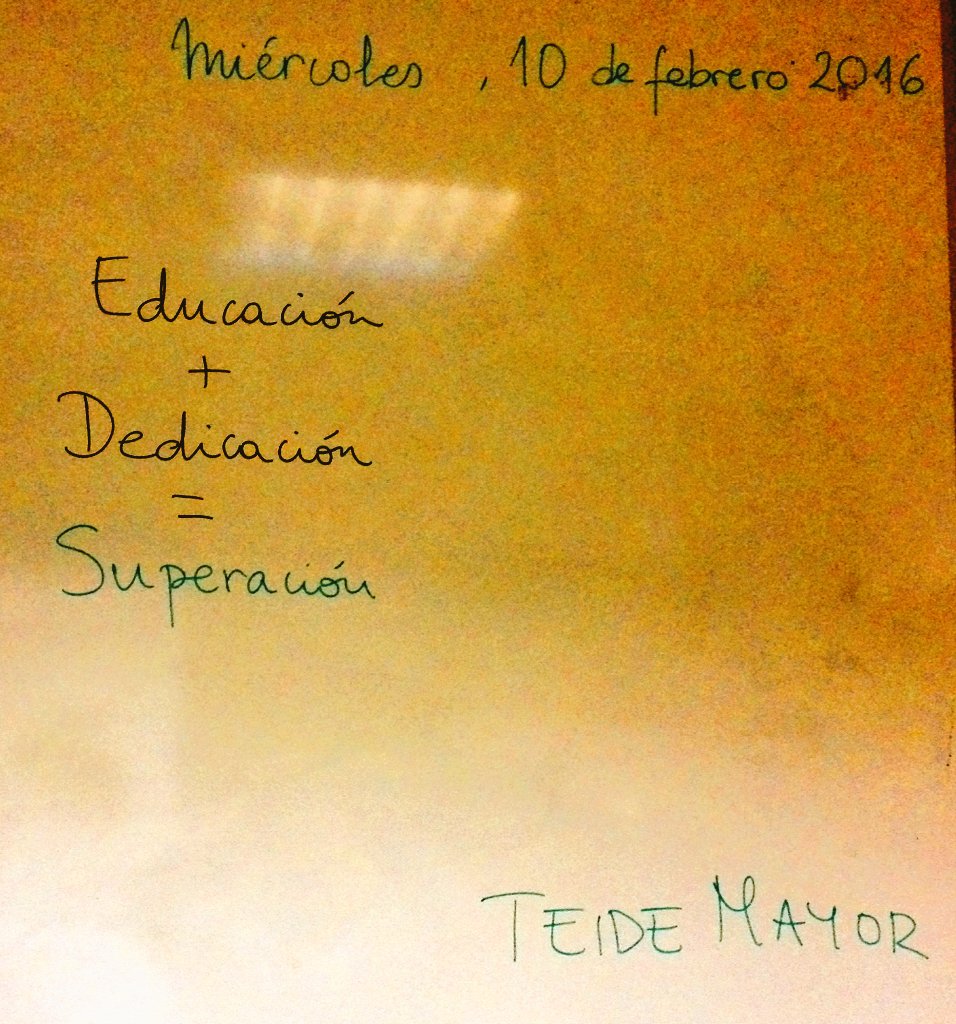 Miércoles , 10 de febrero 2016
Educación
+
Dedicación
=
Superación
TEIDE MAYOR